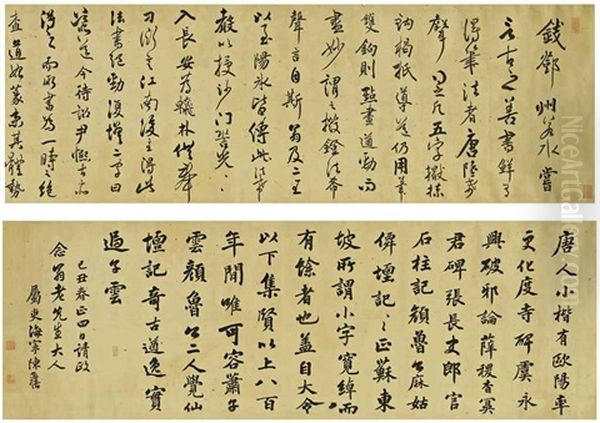 錢鄧州若水嘗
言古之善書鮮有
得筆法者唐陸希
聲得之凡五字擫抹
鈎揭抵導送仍用筆
雙鉤則點畫遒勁而
盡妙謂之撥鐙法希
聲言自斯翁及二王
以至陽氷皆傳此法
教以授沙門光
入長安為翰林供奉
刁衎言江南後主得此
法書絕勁復增二字曰
導送今待詔尹熙古亦
得之而所書為一時之絕
查道始篆患其體勢
唐人小楷有歐陽率
更化度寺碑虞永
興破邪論薛稷杳冥
君碑張長史郎官
石柱記顏魯公麻姑
僊壇記記之正蘇東
坡所謂小字寬綽而
有餘者也蓋自大令
以下集賢以上八百
年間唯可容蕭子
雲顏魯公二人覺仙
壇記奇古遒逸實
過子雲
己丑春正四日請政
念翁老先生大人
屬東海寧陳奕禧